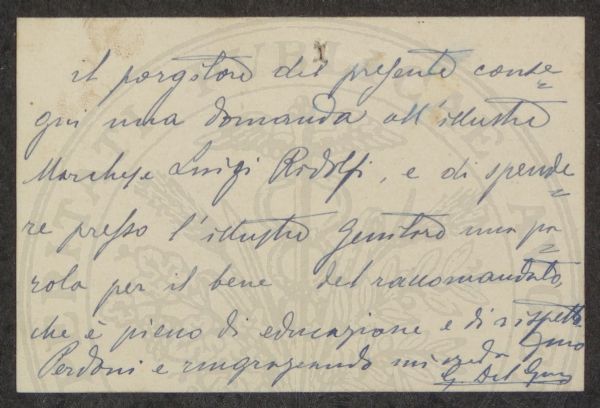 il porgitore del presente conse=
gni una domanda all'illustre
Marchese Luigi Ridolfi, e di spende=
re presso l'illustre genitore una pa=
rola per il bene del raccomandato,
che è pieno di educazione e di rispetto.
Perdoni e ringraziando mi creda suo
G. Del